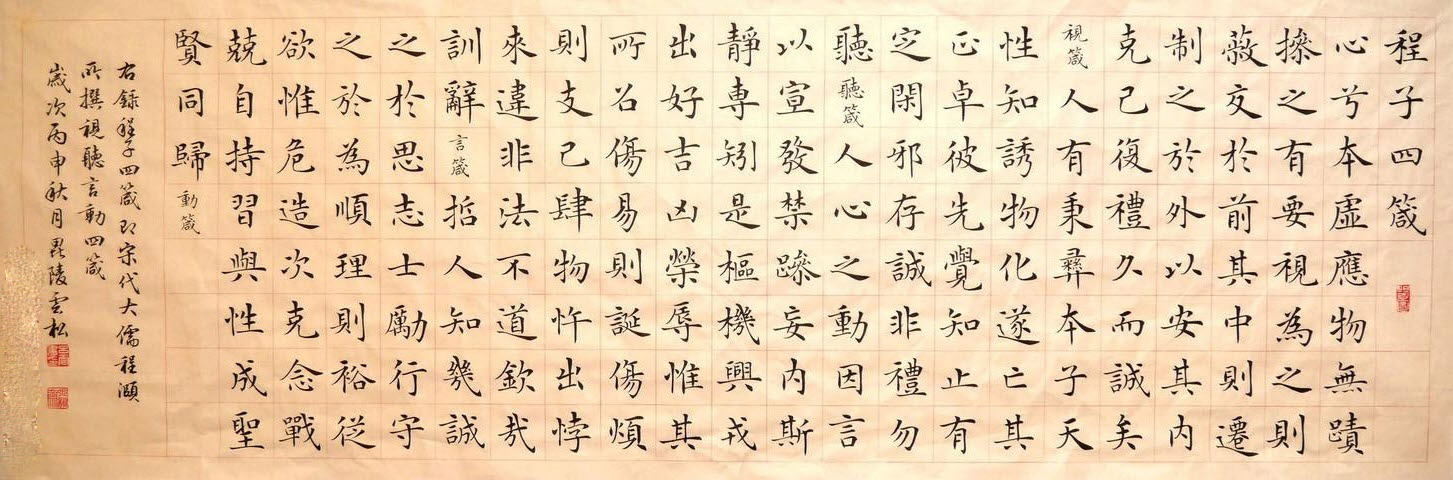 程子四箴
心兮本虛應物無蹟
操之有要視為之則
蔽交於前其中則遷
制之於外以安其內
克己復禮久而誠矣
視箴人有秉彝本子天
性知誘物化遂亡其
正卓彼先覺知止有
定閑邪存誠非禮勿
聽聽箴人心之動因言
以宣發禁躁妄內斯
靜専矧是樞機興戎
出好吉凶榮辱惟其
所召傷易則誕傷煩
則支己肆物忤出悖
來違非法不道欽哉
訓辭言箴哲人知幾誠
之於思志士勵行守
之於為順理則裕從
欲惟危造次克念戰
兢自持習與性成聖
賢同歸動箴
右錄程子四箴即宋代大儒程灝
所撰視聽言動四箴
歲次丙申秋月毘陵雲松